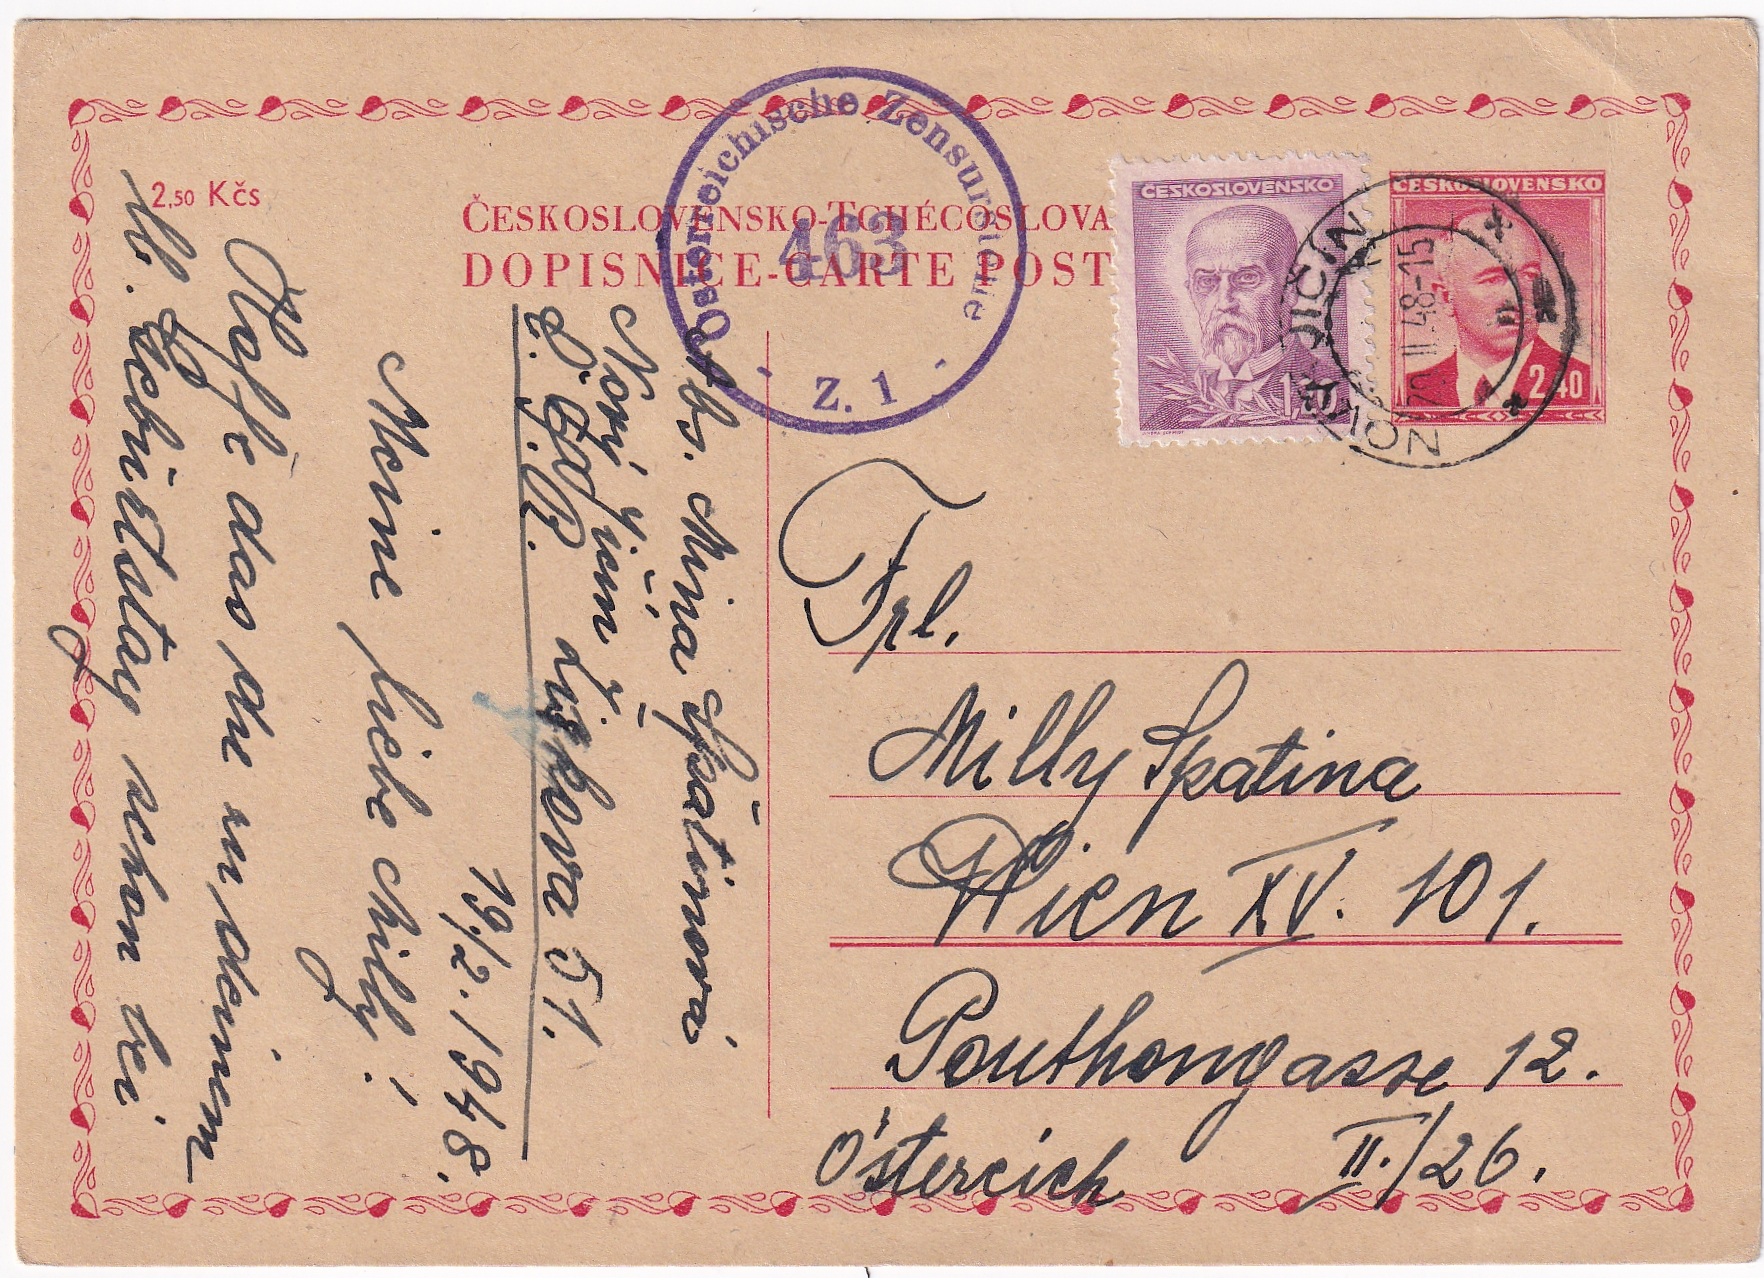 2,50 Kčs
ČESKOSLOVENSKO-TCHÉCOSLOVA
DOPISNICE-CARTE POST
Österreichische Zensurstelle
463
- Z. 1 -
ČESKOSLOVENSKO
ČESKOSLOVENSKO
2,40
JIČÍN
II.48-15
Frl.
Milly Spatina
Wien XV. 101.
Pouthongasse 12.
Östereich II./26.
Abs. Mina Spätinová
Nový Jičín
Č.S.R.
51.
19/2. 1948.
Meine liebe Milly!
Hoffe das du in deinem
lb. Gebürtstag schon bei